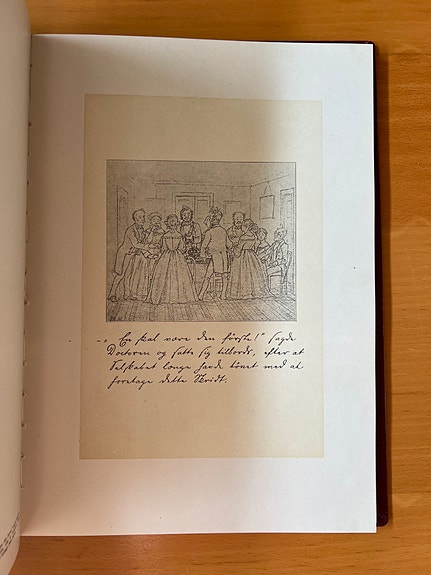 – „En skal være den første!" sagde
Doctoren og satte sig tilbords, efter at
Selskabet længe havde tövet med at
foretage dette Skridt.